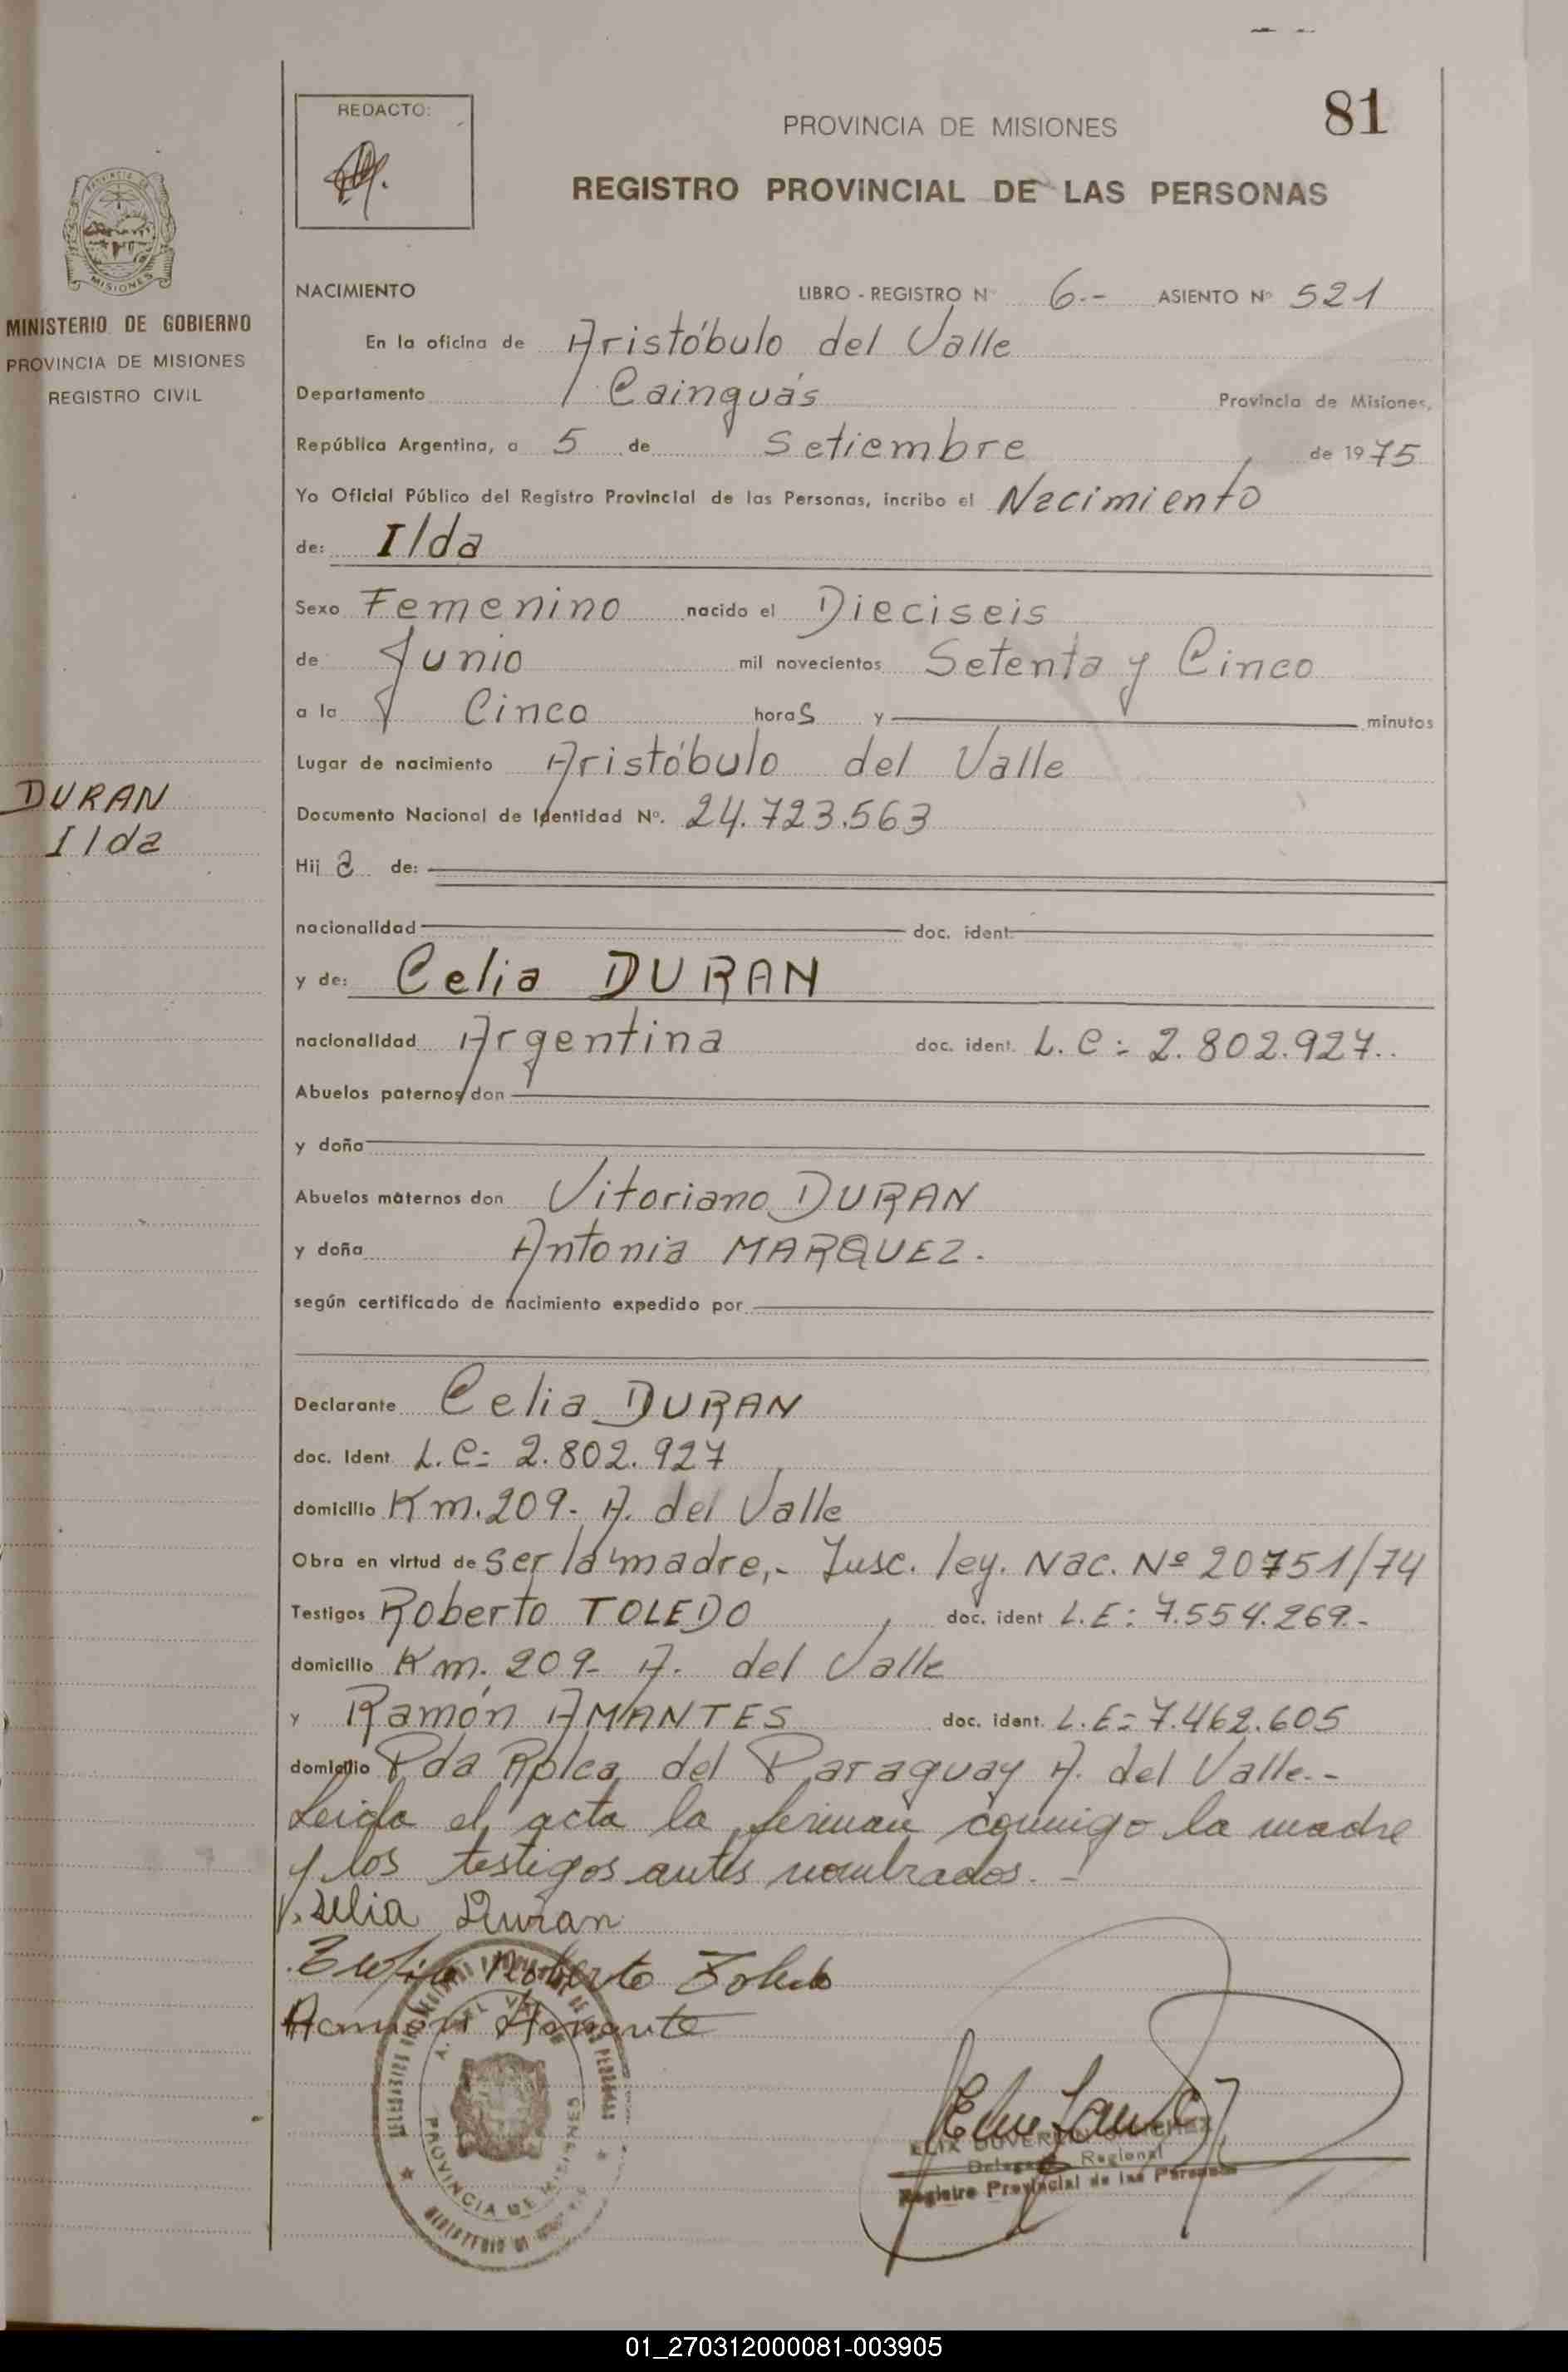 REDACTO:
PROVINCIA DE MISIONES
81
REGISTRO PROVINCIAL DE LAS PERSONAS
PROVINCIA DE
MISIONES
MINISTERIO DE GOBIERNO
PROVINCIA DE MISIONES
REGISTRO CIVIL
NACIMIENTO LIBRO - REGISTRO Nº 6.- ASIENTO Nº 521
En la oficina de Aristóbulo del Valle
Departamento Cainguás Provincia de Misiones,
República Argentina, a 5 de Setiembre de 1975
Yo Oficial Público del Registro Provincial de las Personas, incribo el Nacimiento
de: Ilda
Sexo Femenino nacido el Dieciseis
de Junio mil novecientos Setenta y Cinco
a la Cinco horas y minutos
Lugar de nacimiento Aristóbulo del Valle
DURAN
Ilda
Documento Nacional de Identidad Nº. 24.723.563
Hija de:
nacionalidad doc. ident.
y de: Celia DURAN
nacionalidad Argentina doc. ident. L.C: 2.802.927..
Abuelos paternos don
y doña
Abuelos maternos don Vitoriano DURAN
y doña Antonia MARQUEZ.
según certificado de nacimiento expedido por
Declarante Celia DURAN
doc. Ident. L.C: 2.802.927
domicilio Km.209- A. del Valle
Obra en virtud de ser la madre,- Insc. ley. Nac. Nº 20751/74
Testigos Roberto TOLEDO doc. ident L.E: 7.554.269.-
domicilio Km. 209- A. del Valle
y Ramón AMANTES doc. ident. L.E= 7.462.605
domicilio Pda Rplca del Paraguay A. del Valle.-
Leida el acta la firman conmigo la madre
y los testigos antes nombrados.-
Celia Duran
Roberto Toledo
PROVINCIA DE MISIONES
Delegado Regional
Registro Provincial de las Personas
01_270312000081-003905